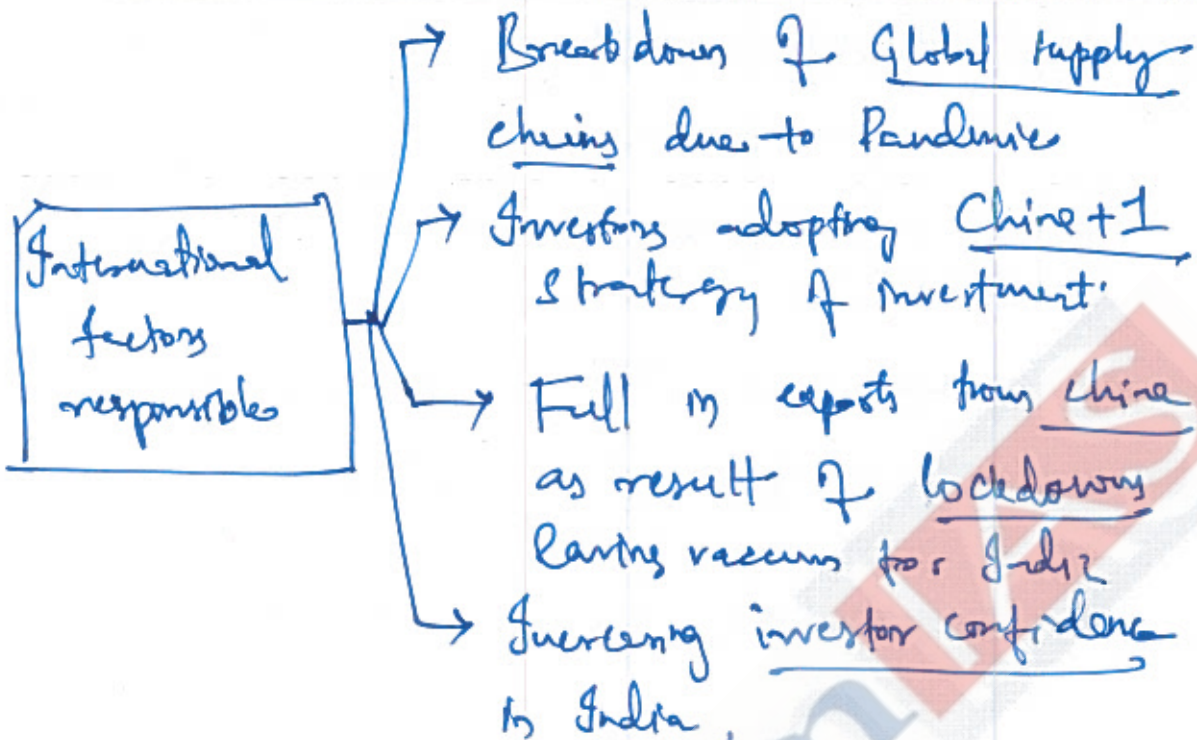 International
factors
responsible
Breakdown of Global supply
chains due to Pandemic
Investors adopting China+1
Stratergy of investment.
Fall in exports from china
as result of lockdowns
leaving vaccum for India
Increasing investor confidence
in India.
IAS